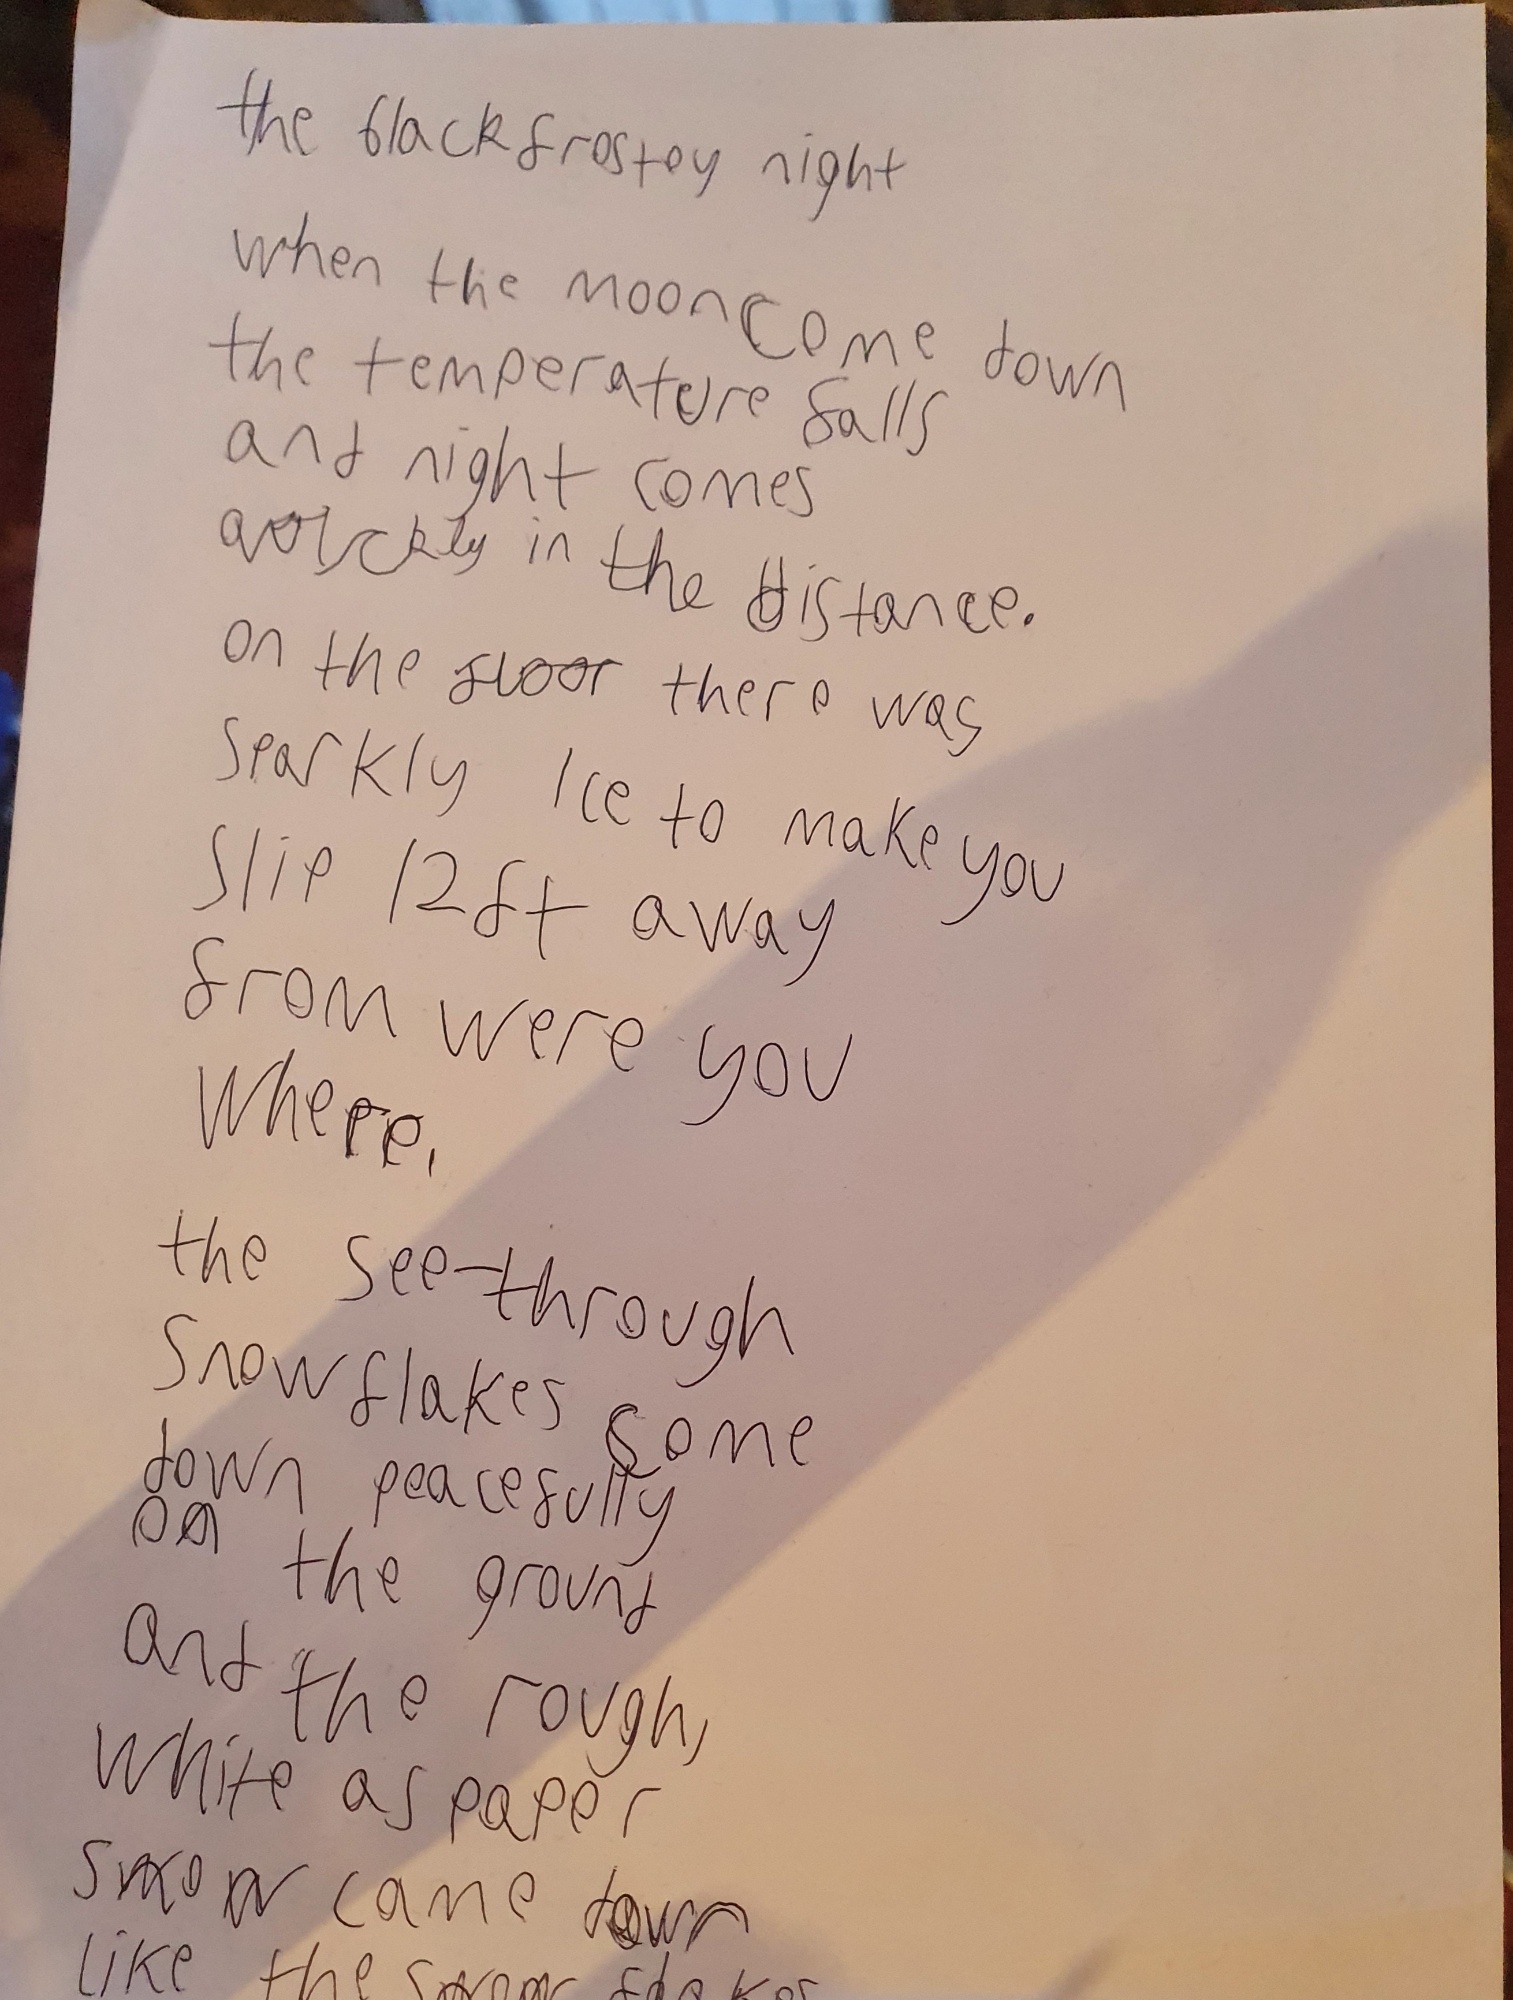 the black frostey night
when the moon come down
the temperature falls
and night comes
quickly in the distance.
on the floor there was
sparkly Ice to make you
slip 12ft away
from were you
where,
the see-through
snowflakes come
down peacefully
on the ground
and the rough,
white as paper
snow came down
like the snow flakes